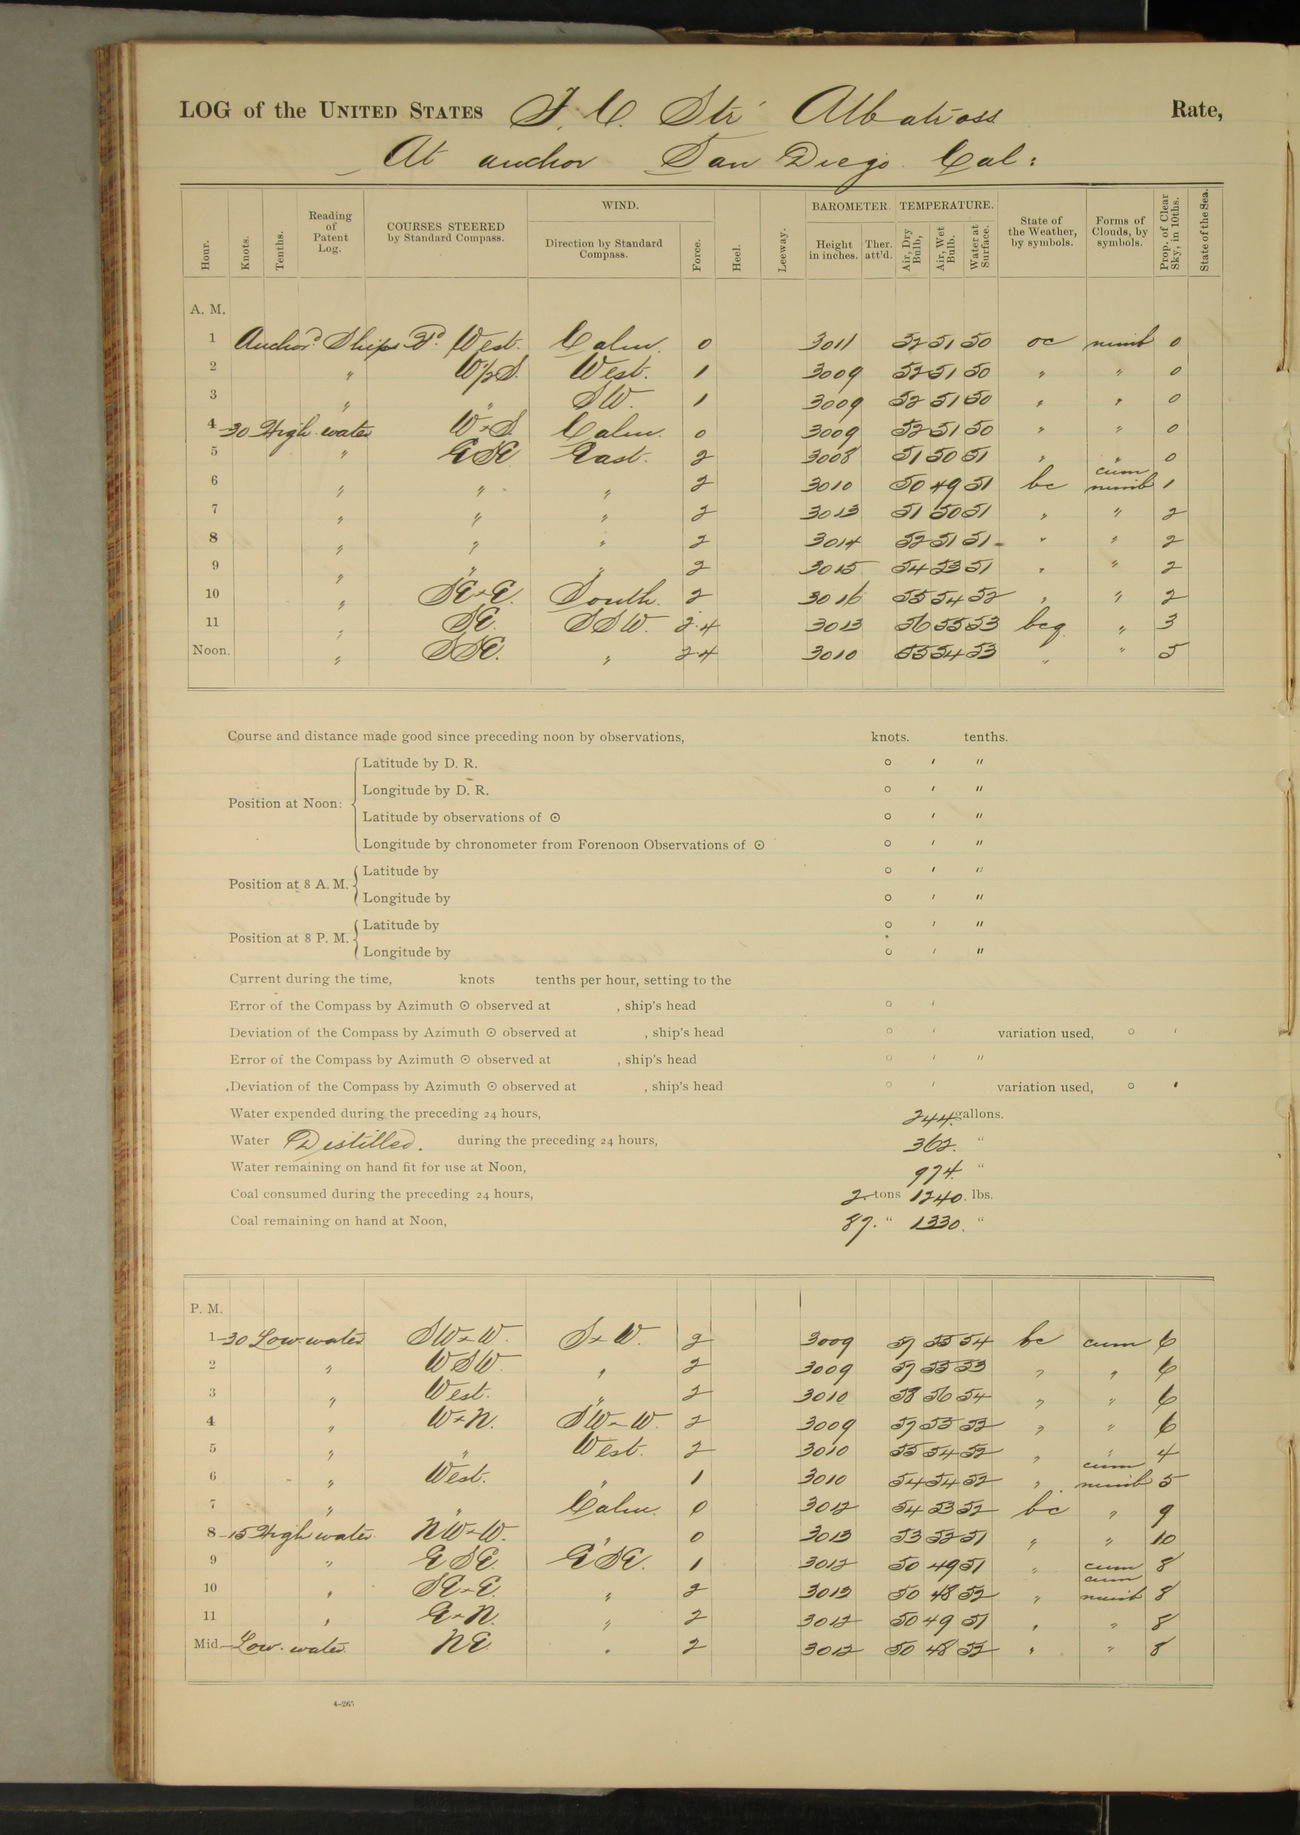 LOG of the UNITED STATES F. C. Str Albatross Rate,
At anchor San Diego Cal:
Hour. Knots. Tenths. Reading of Patent Log. COURSES STEERED by Standard Compass. WIND. Direction by Standard Compass. Force. Heel. Leeway. BAROMETER. Height in inches. Ther. att'd. TEMPERATURE. Air, Dry Bulb, Air, Wet Bulb. Water at Surface. State of the Weather, by symbols. Forms of Clouds, by symbols. Prop. of Clear Sky, in 10ths. State of the Sea.
A. M.
1 Anchor'd Ships H'd West. Calm. 0 3011 52 51 50 oc nimb 0
2 " W½S. West. 1 3009 52 51 50 " " 0
3 " " SW. 1 3009 52 51 50 " " 0
4 -30 High water W x S. Calm. 0 3009 52 51 50 " " 0
5 " ESE East. 2 3008 51 50 51 " " 0
6 " " " 2 3010 50 49 51 bc cum nimb 1
7 " " " 2 3013 51 50 51 " " 2
8 " " " 2 3014 52 51 51 " " 2
9 " " " 2 3015 54 53 51 " " 2
10 " SE x E. South. 2 3016 55 54 52 " " 2
11 " SE. SSW. 2.4 3013 56 55 53 bcq " 3
Noon. " SSE. " 2.4 3010 55 54 53 " " 5
Course and distance made good since preceding noon by observations, knots. tenths.
Position at Noon:
Latitude by D. R. ° ′ ″
Longitude by D. R. ° ′ ″
Latitude by observations of ⊙ ° ′ ″
Longitude by chronometer from Forenoon Observations of ⊙ ° ′ ″
Position at 8 A. M.
Latitude by ° ′ ″
Longitude by ° ′ ″
Position at 8 P. M.
Latitude by ° ′ ″
Longitude by ° ′ ″
Current during the time, knots tenths per hour, setting to the
Error of the Compass by Azimuth ⊙ observed at , ship's head ° ′
Deviation of the Compass by Azimuth ⊙ observed at , ship's head ° ′ variation used, ° ′
Error of the Compass by Azimuth ⊙ observed at , ship's head ° ′ ″
Deviation of the Compass by Azimuth ⊙ observed at , ship's head ° ′ variation used, ° ′
Water expended during the preceding 24 hours, 244. gallons.
Water Distilled. during the preceding 24 hours, 362. "
Water remaining on hand fit for use at Noon, 974. "
Coal consumed during the preceding 24 hours, 2 tons 1240. lbs.
Coal remaining on hand at Noon, 87. " 1330. "
P. M.
1 -30 Low water SW x W. S x W. 2 3009 57 55 54 bc cum 6
2 " WSW. " 2 3009 57 55 53 " " 6
3 " West. " 2 3010 58 56 54 " " 6
4 " W x N. SW x W. 2 3009 57 55 52 " " 6
5 " " West. 2 3010 55 54 52 " " 4
6 " West. " 1 3010 54 54 52 " cum nimb 5
7 " " Calm. 0 3012 54 53 52 bc " 9
8 -15 High water NW x W. " 0 3013 53 52 51 " " 10
9 " ESE. ESE. 1 3012 50 49 51 " cum 8
10 " SE x E. " 2 3013 50 48 52 " cum nimb 8
11 " E x N. " 2 3012 50 49 51 " " 8
Mid. - Low water. NE. " 2 3012 50 48 52 " " 8
4-265